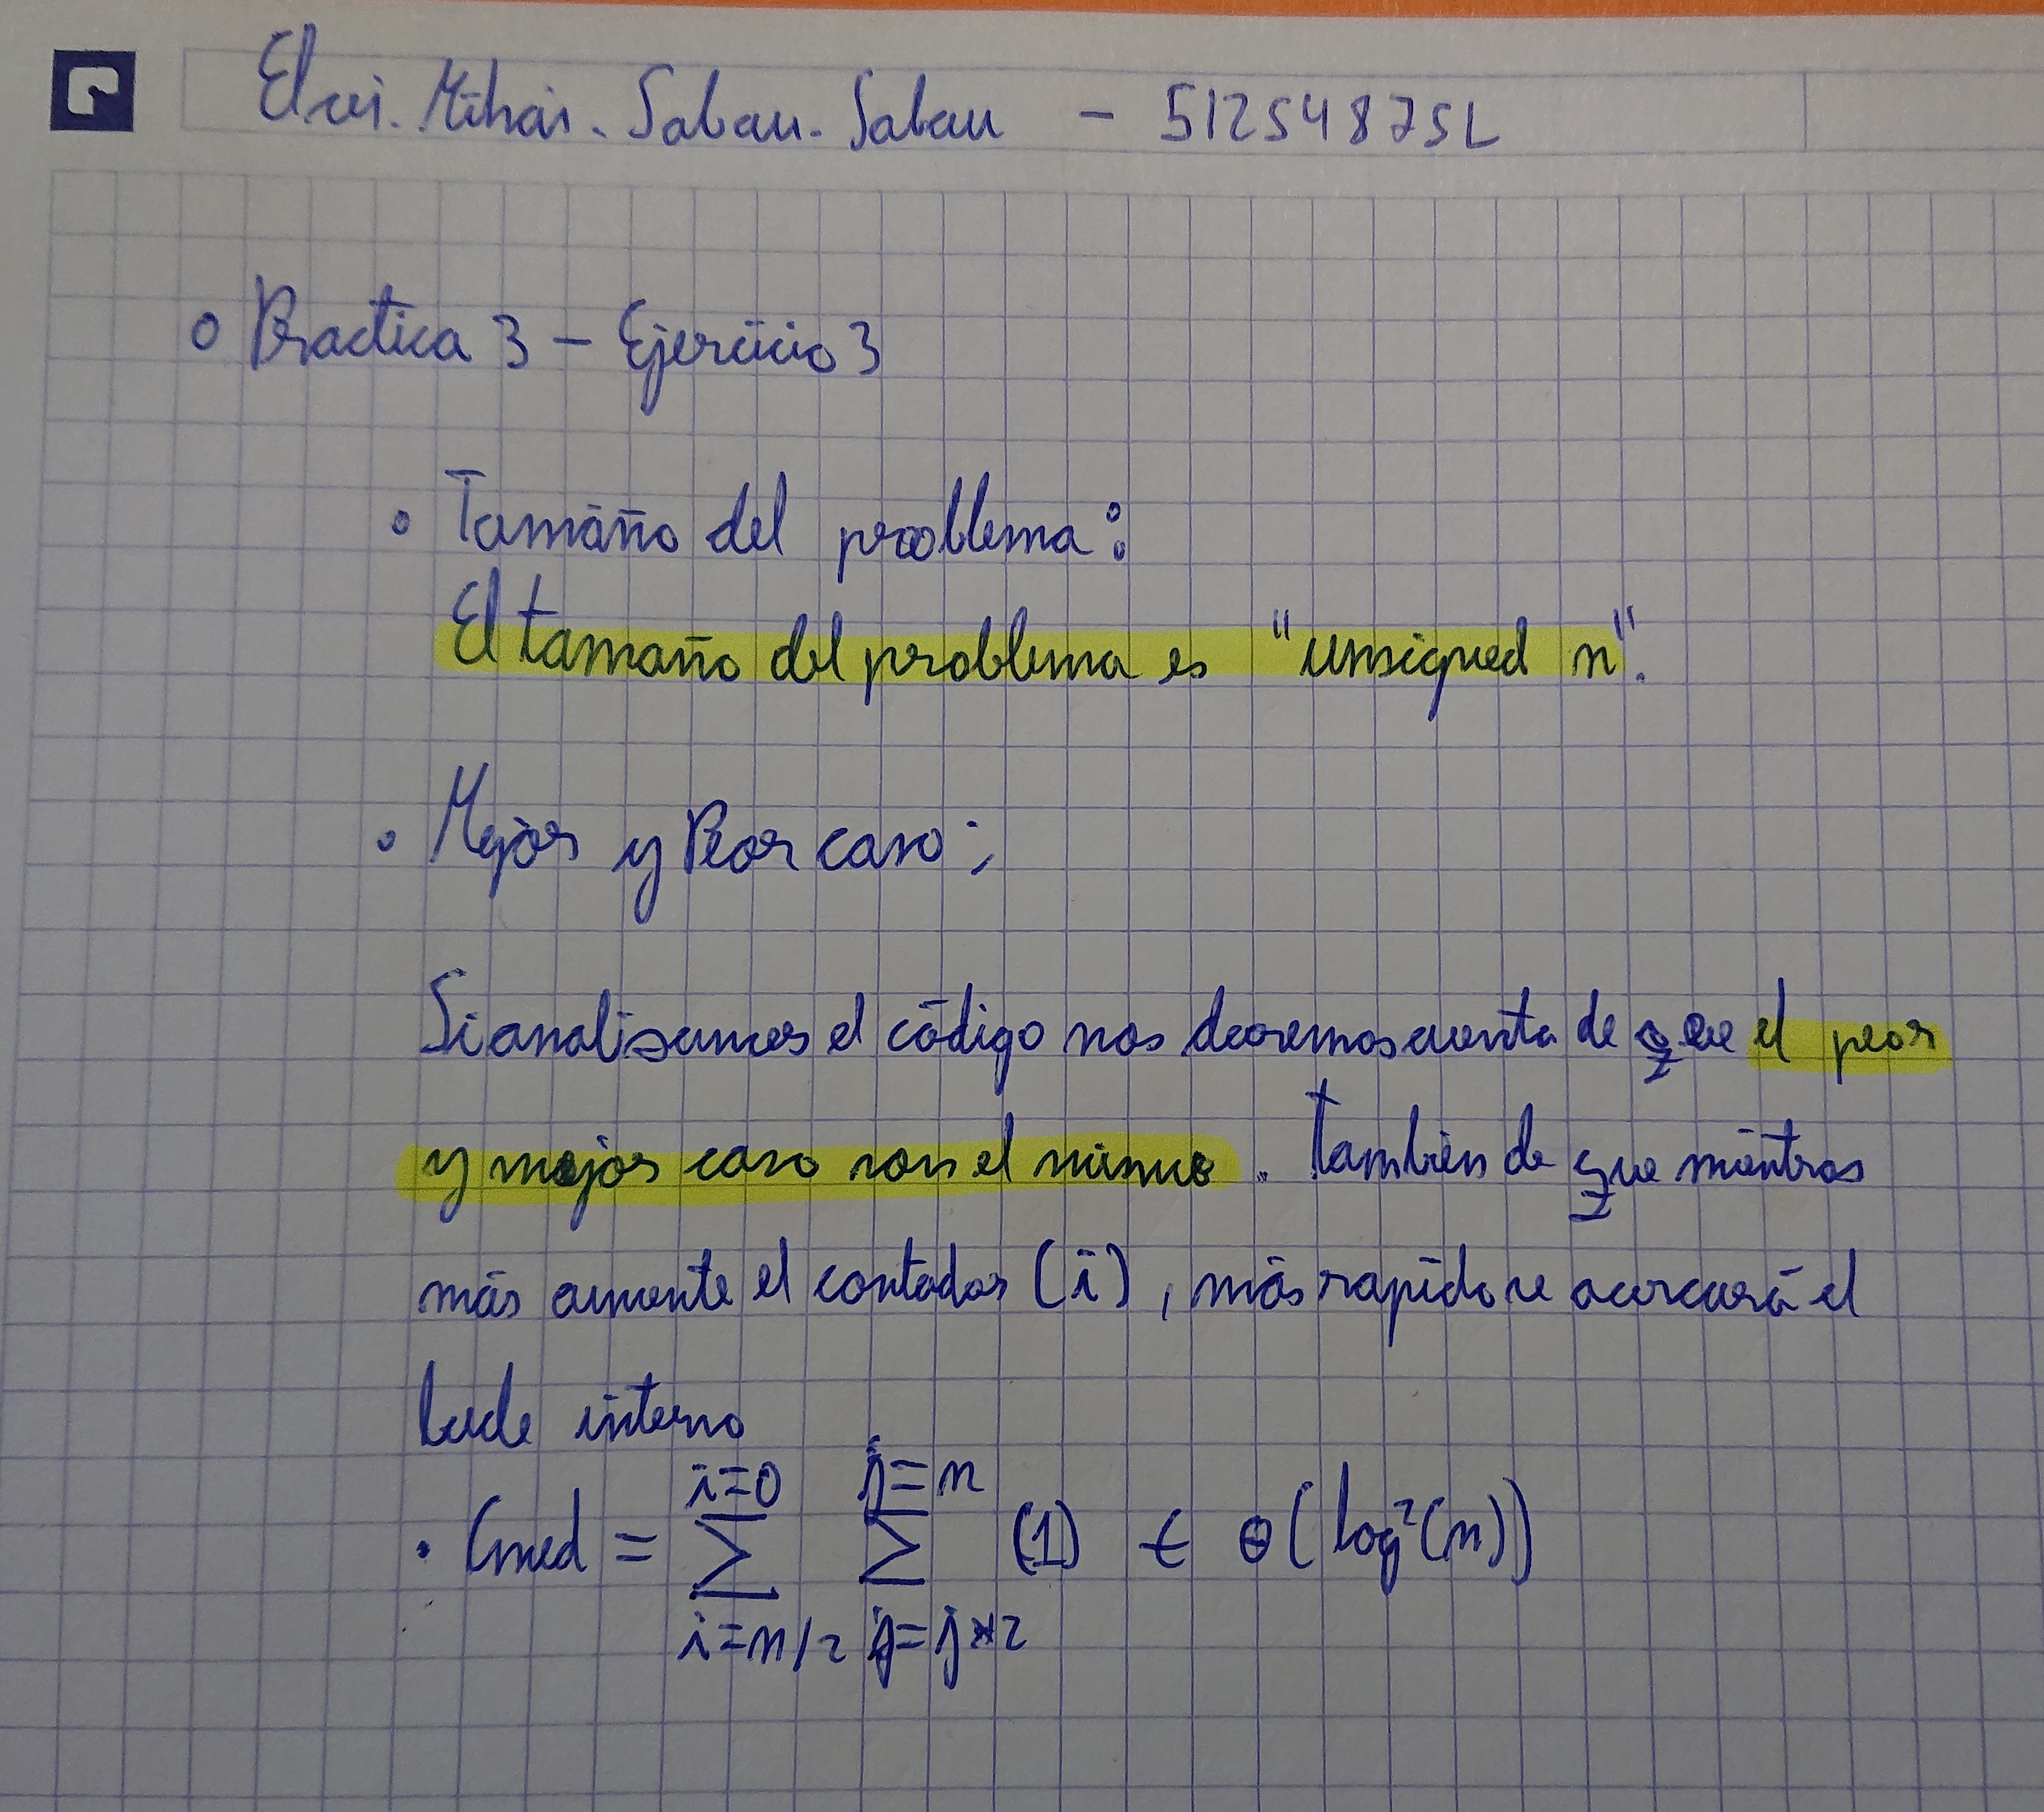 Elvis.Mihai.Sabau.Sabau - 51254875L
Practica 3 - Ejercicio 3
Tamaño del problema:
El tamaño del problema es "unsigned n".
Mejor y Peor caso:
Si analisamos el código nos daremos cuenta de que el peor
y mejor caso son el mismo. también de que mientras
más aumente el contador (i), más rapido se acercará el
bucle interno
i=0 j=n
Cmed = ∑ ∑ (1) ∈ Θ(log²(n))
i=n/2 j=j*2